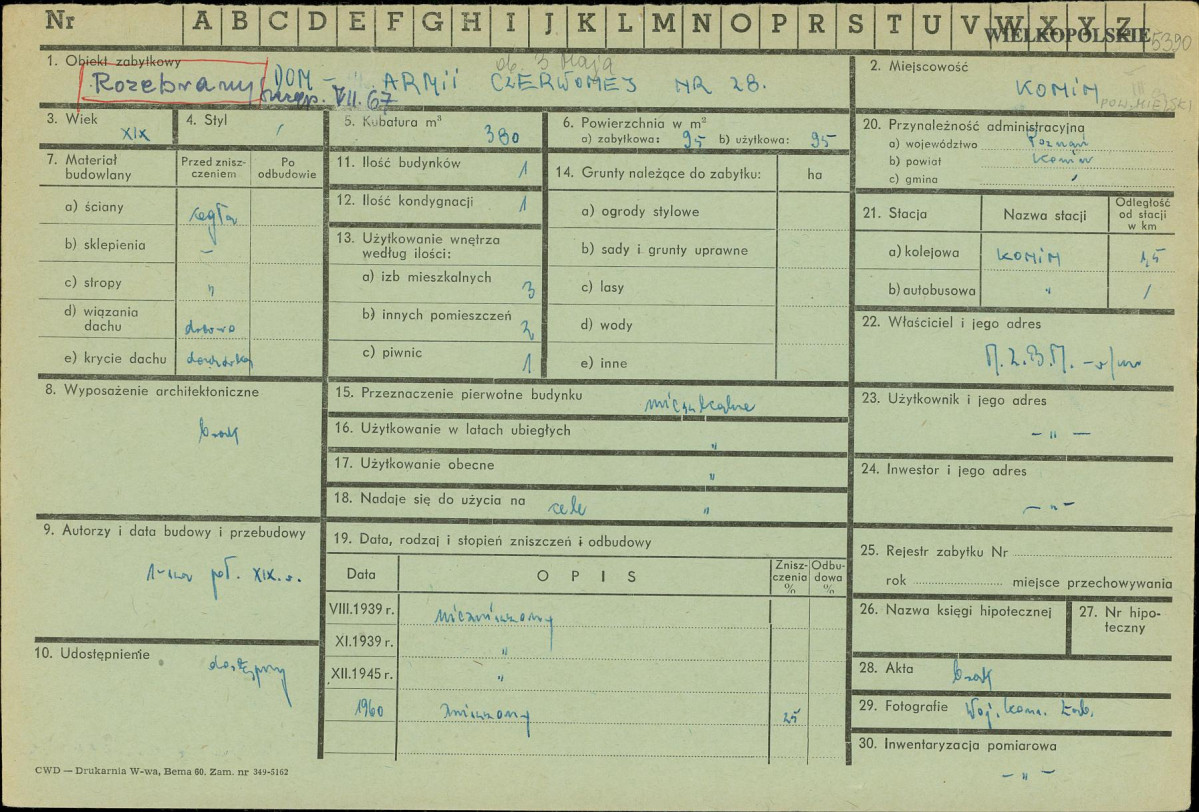 Nr A B C D E F G H I J K L M N O P R S T U V W X Y Z
WIELKOPOLSKIE 5390
1. Obiekt zabytkowy
ob. 3 Maja
Rozebrany DOM – ARMII CZERWONEJ NR 28.
VII. 67
2. Miejscowość
KONIN
POW. MIEJSKI
3. Wiek
XIX
4. Styl
/
5. Kubatura m³
380
6. Powierzchnia w m²
a) zabytkowa: 95 b) użytkowa: 95
7. Materiał budowlany
Przed znisz-
czeniem
Po
odbudowie
a) ściany cegła
b) sklepienia –
c) stropy "
d) wiązania
dachu drewno
e) krycie dachu dachówka
8. Wyposażenie architektoniczne
brak
9. Autorzy i data budowy i przebudowy
1-sza poł. XIX w.
10. Udostępnienie
dostępny
11. Ilość budynków 1
12. Ilość kondygnacji 1
13. Użytkowanie wnętrza
według ilości:
a) izb mieszkalnych 3
b) innych pomieszczeń 2
c) piwnic 1
14. Grunty należące do zabytku: ha
a) ogrody stylowe
b) sady i grunty uprawne
c) lasy
d) wody
e) inne
15. Przeznaczenie pierwotne budynku mieszkalne
16. Użytkowanie w latach ubiegłych "
17. Użytkowanie obecne "
18. Nadaje się do użycia na cele "
19. Data, rodzaj i stopień zniszczeń i odbudowy
Data OPIS Znisz-
czenia
% Odbu-
dowa
%
VIII.1939 r. niezniszczony
XI.1939 r. "
XII.1945 r. "
1960 zniszczony 25
20. Przynależność administracyjna
a) województwo Poznań
b) powiat Konin
c) gmina /
21. Stacja Nazwa stacji Odległość
od stacji
w km
a) kolejowa KONIN 1,5
b) autobusowa " /
22. Właściciel i jego adres
M.Z.B.M. – w/m
23. Użytkownik i jego adres
– " –
24. Inwestor i jego adres
– " –
25. Rejestr zabytku Nr
rok miejsce przechowywania
26. Nazwa księgi hipotecznej
27. Nr hipo-
teczny
28. Akta brak
29. Fotografie Woj. Kons. Zab.
30. Inwentaryzacja pomiarowa
– " –
CWD — Drukarnia W-wa, Bema 60. Zam. nr 349-5162